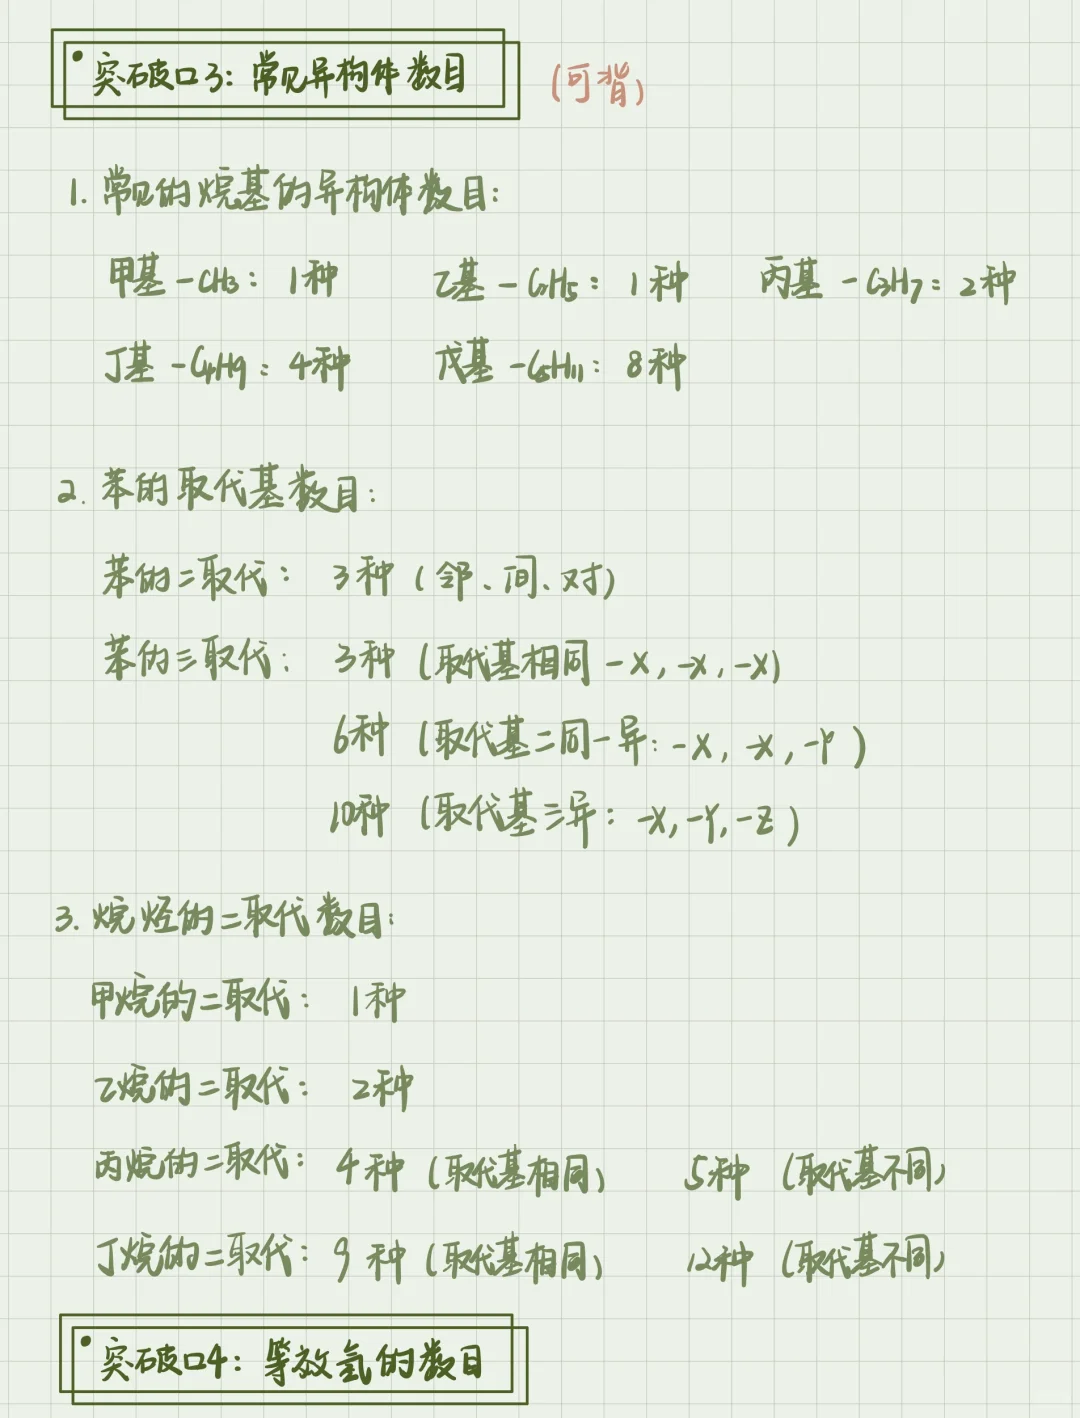 突破口3：常见异构体数目 （可背）
1. 常见的烷基的异构体数目：
甲基 -CH3：1种 乙基 -C2H5：1种 丙基 -C3H7：2种
丁基 -C4H9：4种 戊基 -C5H11：8种
2. 苯的取代基数目：
苯的二取代：3种（邻、间、对）
苯的三取代：3种（取代基相同 -X，-X，-X）
6种（取代基二同一异：-X，-X，-Y）
10种（取代基三异：-X，-Y，-Z）
3. 烷烃的二取代数目：
甲烷的二取代：1种
乙烷的二取代：2种
丙烷的二取代：4种（取代基相同） 5种（取代基不同）
丁烷的二取代：9种（取代基相同） 12种（取代基不同）
突破口4：等效氢的数目